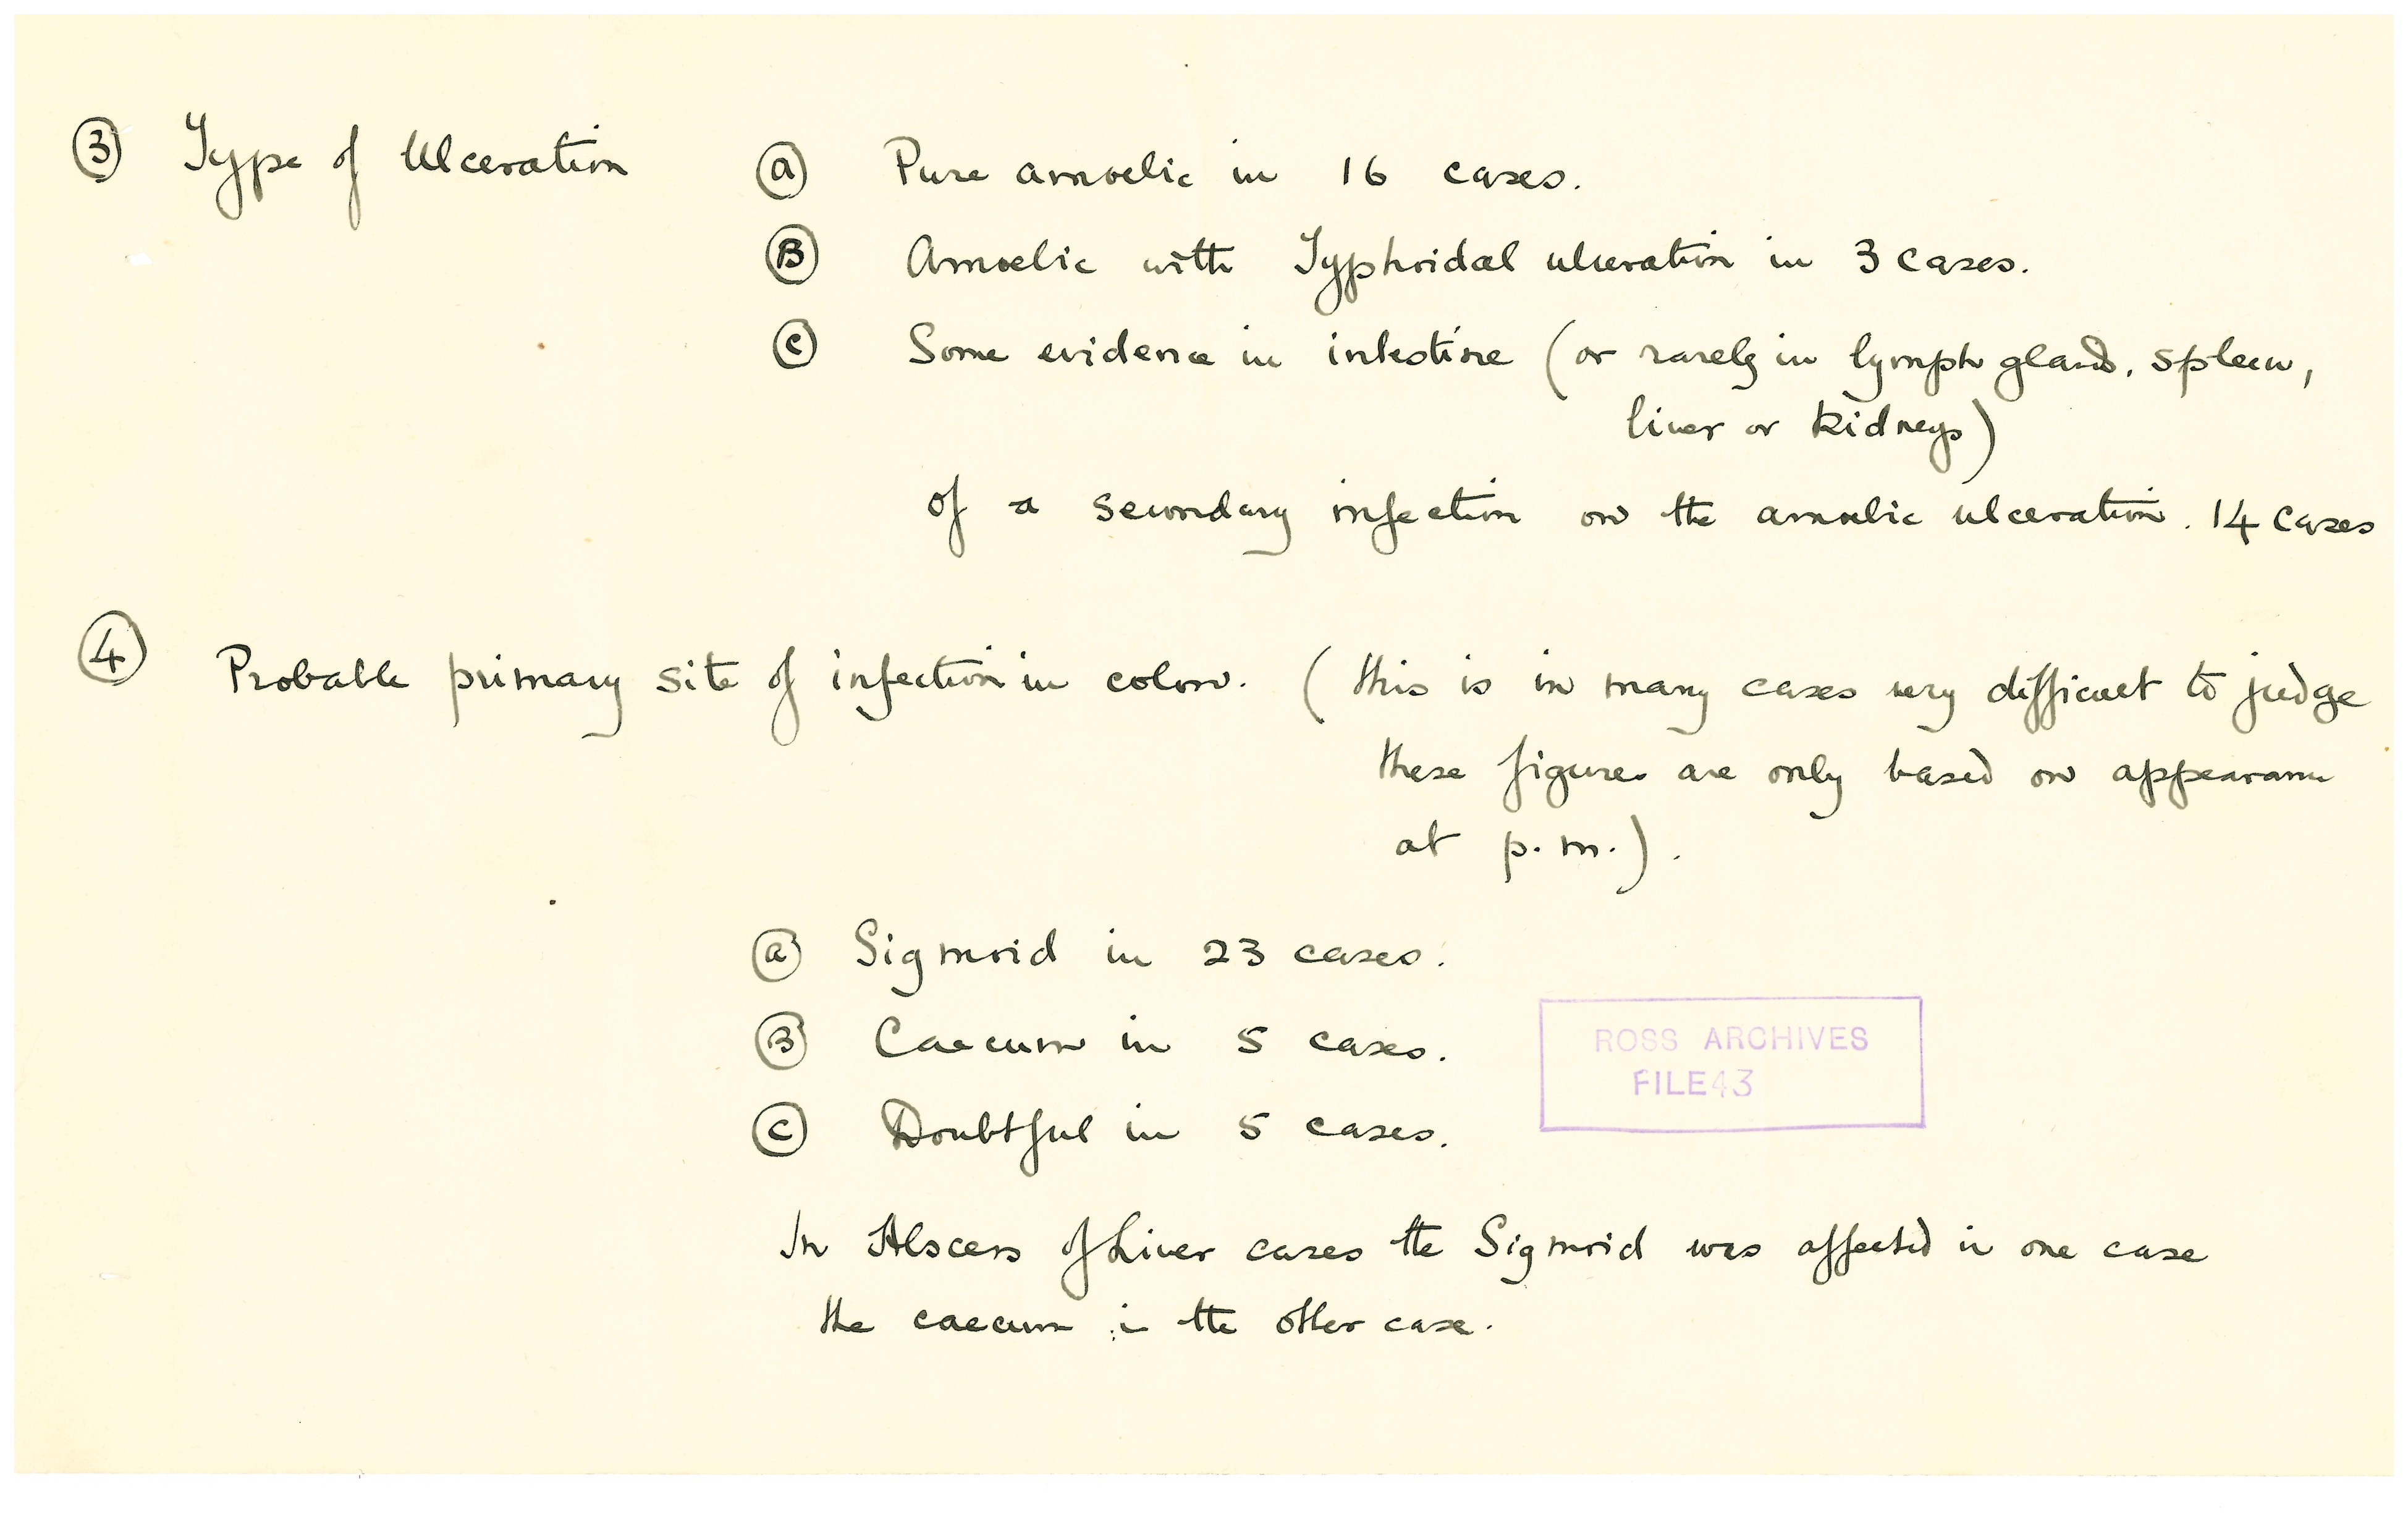 ③ Type of Ulceration ⓐ Pure amoebic in 16 cases.
Ⓑ Amoebic with Typhoidal ulceration in 3 cases.
Ⓒ Some evidence in intestine (or rarely in lymph glands, spleen,
liver or kidneys)
of a secondary infection on the amoebic ulceration. 14 cases
④ Probable primary site of infection in colon. (this is in many cases very difficult to judge
these figures are only based on appearance
at p.m.).
ⓐ Sigmoid in 23 cases.
Ⓑ Caecum in 5 cases.
Ⓒ Doubtful in 5 cases.
ROSS ARCHIVES
FILE 43
In Abscess of Liver cases the Sigmoid was affected in one case
the caecum in the other case.